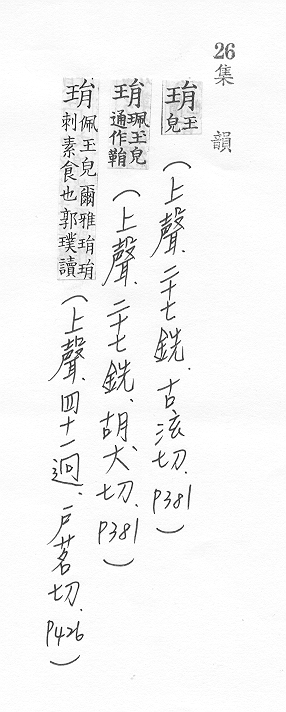 26 集韻
琄 玉皃 （上聲、二十七銑、古泫切. P381）
琄 珮玉皃通作鞙 （上聲、二十七銑、胡犬切. P381）
琄 佩玉皃爾雅琄琄刺素食也郭璞讀 （上聲、四十一迥、戶茗切. P426）